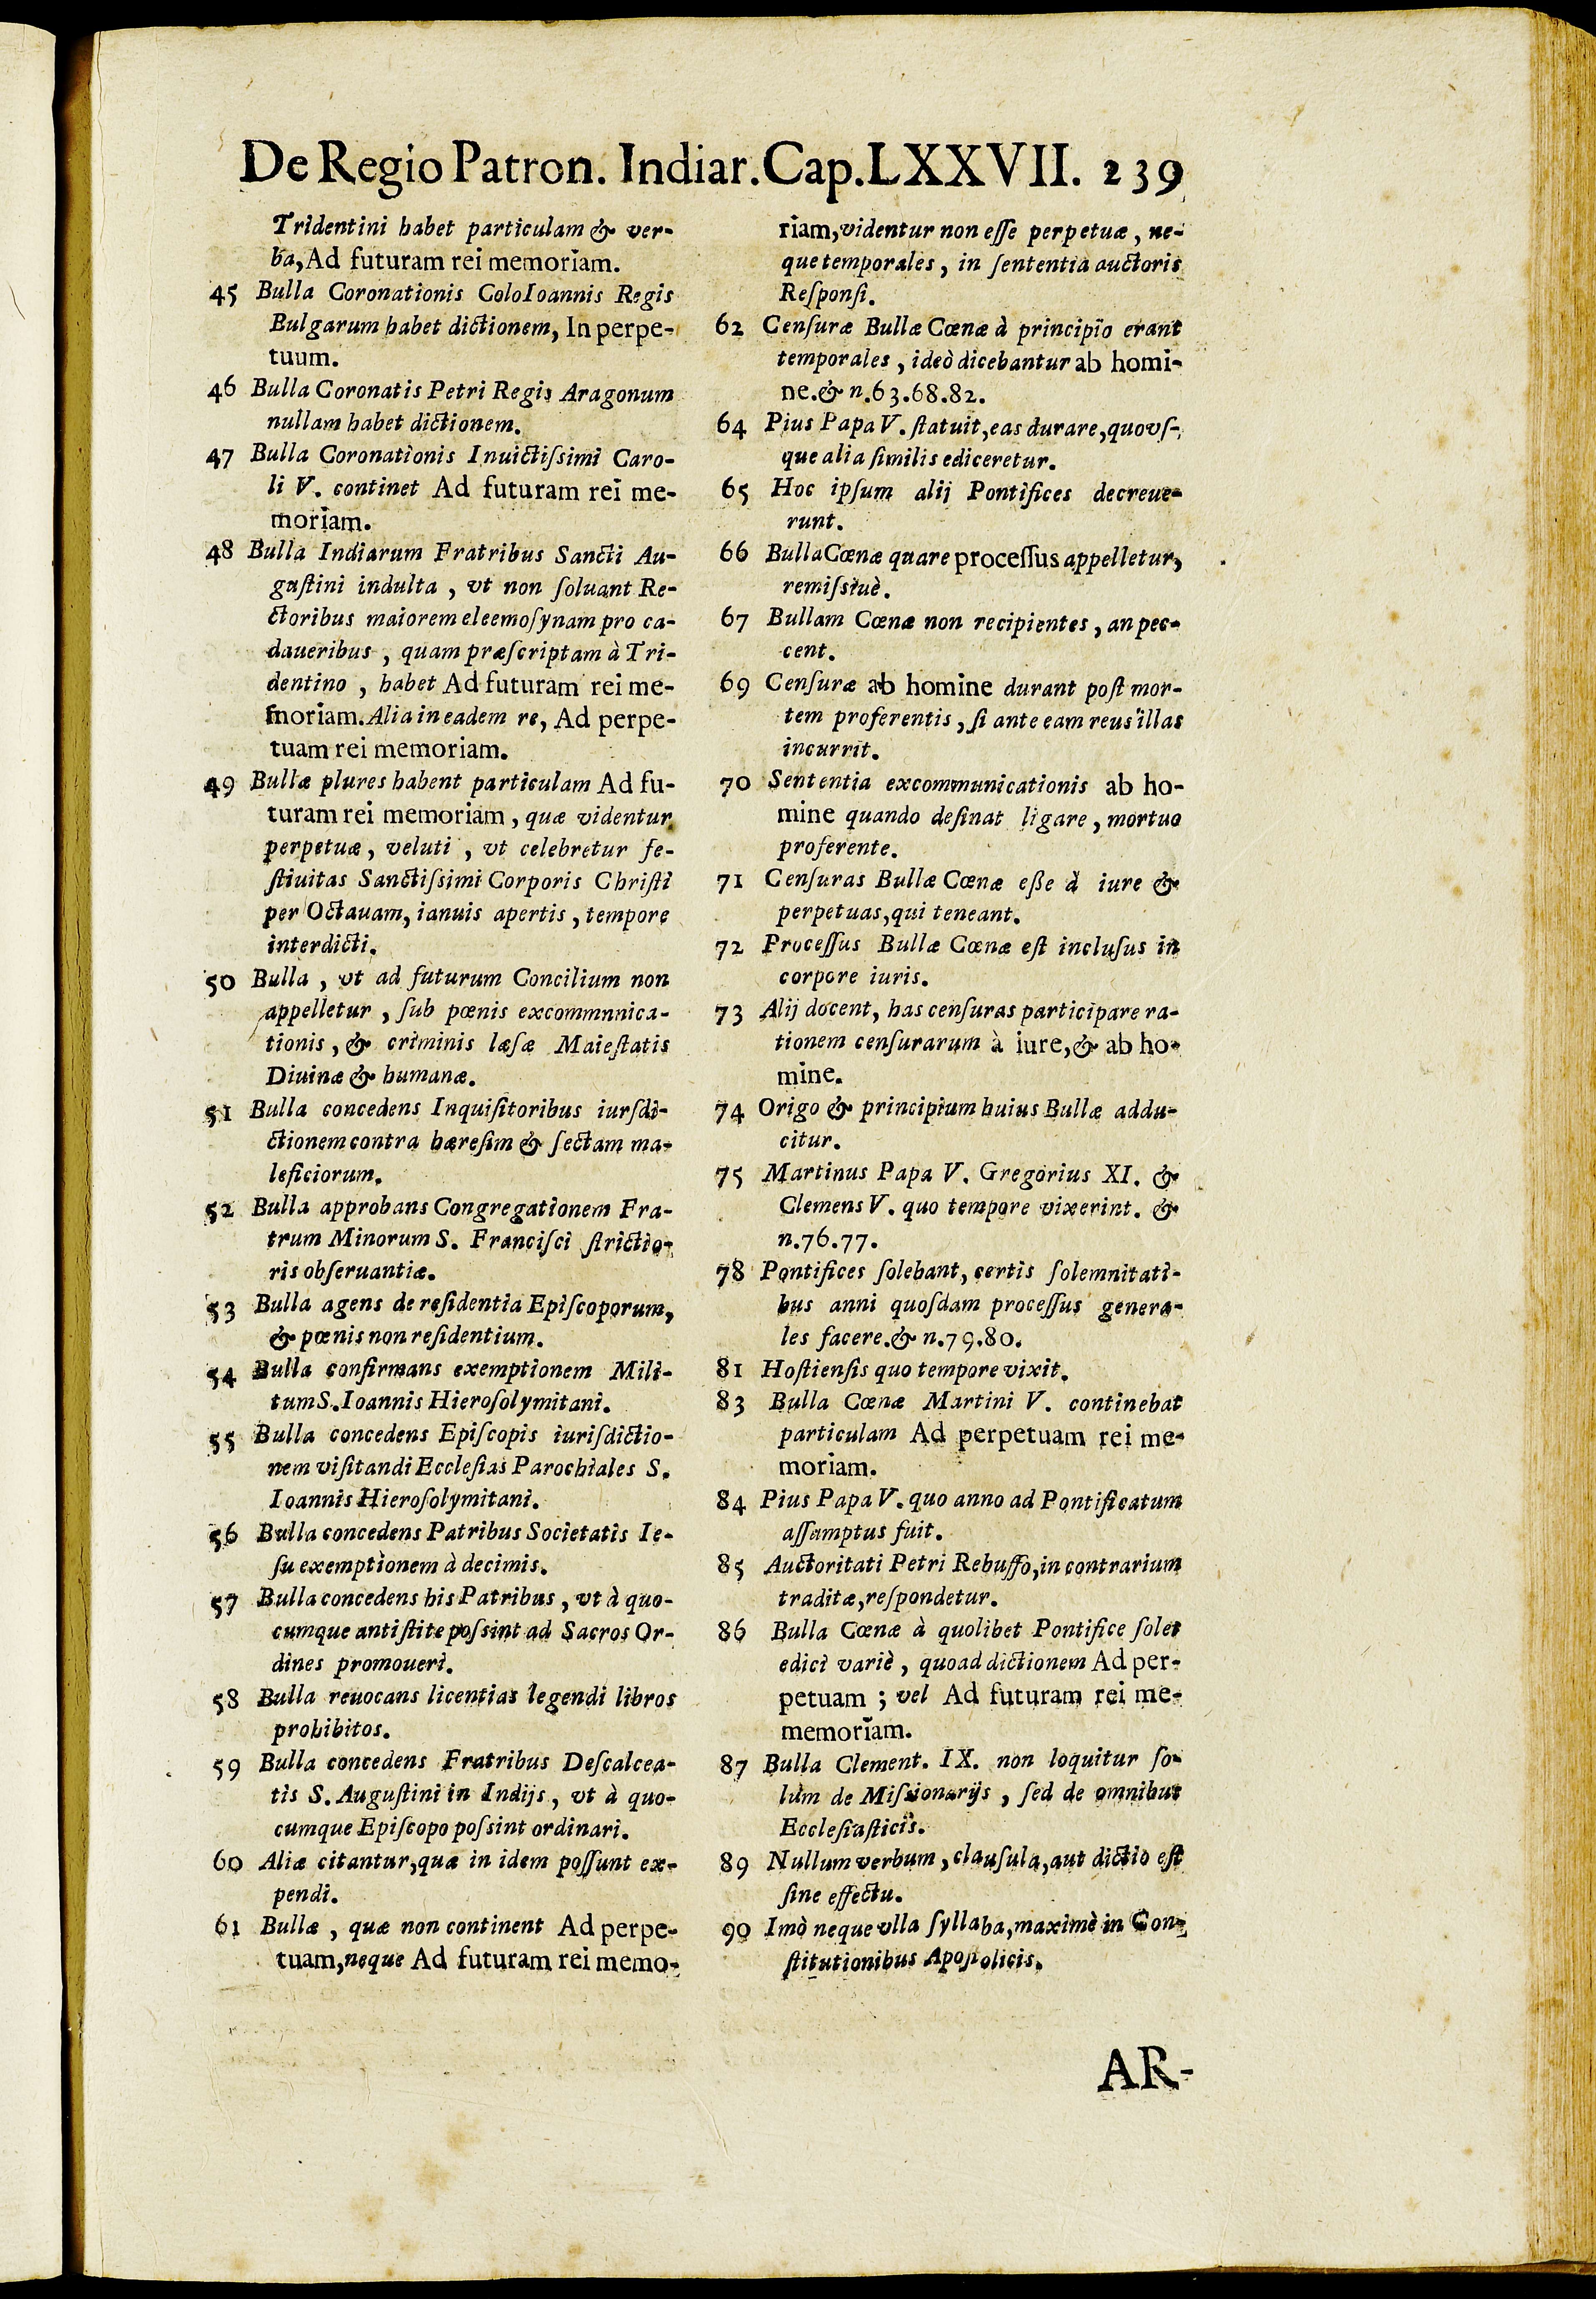 De Regio Patron. Indiar. Cap. LXXVII. 239
Tridentini habet particulam & ver-
ba, Ad futuram rei memoriam.
45 Bulla Coronationis ColoIoannis Regis
Bulgarum habet dictionem, In perpe-
tuum.
46 Bulla Coronatis Petri Regis Aragonum
nullam habet dictionem.
47 Bulla Coronationis Inuictiſsimi Caro-
li V. continet Ad futuram rei me-
moriam.
48 Bulla Indiarum Fratribus Sancti Au-
guſtini indulta, vt non ſoluant Re-
ctoribus maiorem eleemoſynam pro ca-
daueribus, quam præſcriptam à Tri-
dentino, habet Ad futuram rei me-
moriam. Alia in eadem re, Ad perpe-
tuam rei memoriam.
49 Bullæ plures habent particulam Ad fu-
turam rei memoriam, quæ videntur
perpetuæ, veluti, vt celebretur fe-
ſtiuitas Sanctiſsimi Corporis Chriſti
per Octauam, ianuis apertis, tempore
interdicti.
50 Bulla, vt ad futurum Concilium non
appelletur, ſub pœnis excommnnica-
tionis, & criminis læſæ Maieſtatis
Diuinæ & humanæ.
51 Bulla concedens Inquiſitoribus iurſdi-
ctionem contra hæreſim & ſectam ma-
leficiorum.
52 Bulla approbans Congregationem Fra-
trum Minorum S. Franciſci ſtrictio-
ris obſeruantiæ.
53 Bulla agens de reſidentia Epiſcoporum,
& pœnis non reſidentium.
54 Bulla confirmans exemptionem Mili-
tum S. Ioannis Hieroſolymitani.
55 Bulla concedens Epiſcopis iuriſdictio-
nem viſitandi Eccleſias Parochiales S.
Ioannis Hieroſolymitani.
56 Bulla concedens Patribus Societatis Ie-
ſu exemptionem à decimis.
57 Bulla concedens his Patribus, vt à quo-
cumque antiſtite poſsint ad Sacros Or-
dines promoueri.
58 Bulla reuocans licentias legendi libros
prohibitos.
59 Bulla concedens Fratribus Deſcalcea-
tis S. Auguſtini in Indijs, vt à quo-
cumque Epiſcopo poſsint ordinari.
60 Aliæ citantur, quæ in idem poſſunt ex-
pendi.
61 Bullæ, quæ non continent Ad perpe-
tuam, neque Ad futuram rei memo-
riam, videntur non eſſe perpetuæ, ne-
que temporales, in ſententia auctoris
Reſponſi.
62 Cenſuræ Bullæ Cœnæ à principio erant
temporales, ideò dicebantur ab homi-
ne. & n. 63. 68. 82.
64 Pius Papa V. ſtatuit, eas durare, quovſ-
que alia ſimilis ediceretur.
65 Hoc ipſum alij Pontifices decreue-
runt.
66 Bulla Cœnæ quare proceſſus appelletur,
remiſsiuè.
67 Bullam Cœnæ non recipientes, an pec-
cent.
69 Cenſuræ ab homine durant poſt mor-
tem proferentis, ſi ante eam reus illas
incurrit.
70 Sententia excommunicationis ab ho-
mine quando deſinat ligare, mortuo
proferente.
71 Cenſuras Bullæ Cœnæ eße à iure &
perpetuas, qui teneant.
72 Proceſſus Bullæ Cœnæ eſt incluſus in
corpore iuris.
73 Alij docent, has cenſuras participare ra-
tionem cenſurarum à iure, & ab ho-
mine.
74 Origo & principium huius Bullæ addu-
citur.
75 Martinus Papa V. Gregorius XI. &
Clemens V. quo tempore vixerint. &
n. 76. 77.
78 Pontifices ſolebant, certis ſolemnitati-
bus anni quoſdam proceſſus genera-
les facere. & n. 79. 80.
81 Hoſtienſis quo tempore vixit.
83 Bulla Cœnæ Martini V. continebat
particulam Ad perpetuam rei me-
moriam.
84 Pius Papa V. quo anno ad Pontificatum
aſſumptus fuit.
85 Auctoritati Petri Rebuffo, in contrarium
traditæ, reſpondetur.
86 Bulla Cœnæ à quolibet Pontifice ſolet
edici variè, quoad dictionem Ad per-
petuam; vel Ad futuram rei me-
memoriam.
87 Bulla Clement. IX. non loquitur ſo-
lùm de Miſsionarijs, ſed de omnibus
Eccleſiaſticis.
89 Nullum verbum, clauſula, aut dictio eſt
ſine effectu.
90 Imò neque vlla ſyllaba, maximè in Con-
ſtitutionibus Apoſtolicis.
AR-